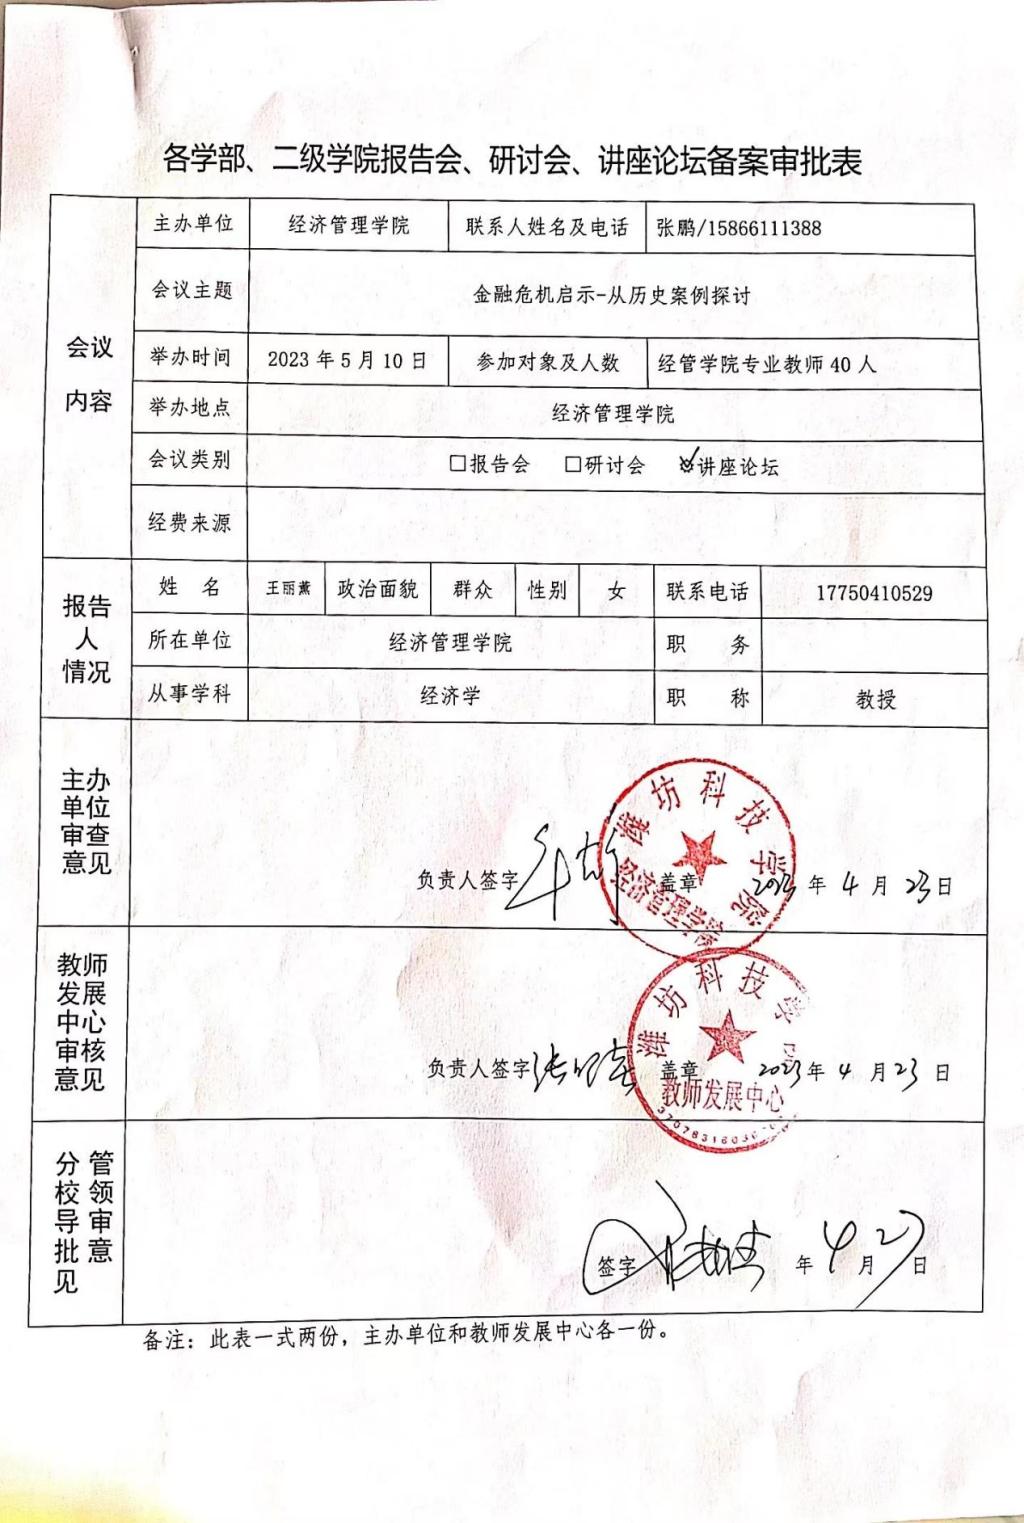 各学部、二级学院报告会、研讨会、讲座论坛备案审批表
会议内容
主办单位 经济管理学院 联系人姓名及电话 张鹏/15866111388
会议主题 金融危机启示-从历史案例探讨
举办时间 2023年5月10日 参加对象及人数 经管学院专业教师40人
举办地点 经济管理学院
会议类别 □报告会 □研讨会 ☑讲座论坛
经费来源
报告人情况
姓 名 王丽薰 政治面貌 群众 性别 女 联系电话 17750410529
所在单位 经济管理学院 职 务
从事学科 经济学 职 称 教授
主办单位审查意见
潍坊科技学院
经济管理学院
负责人签字 盖章 2023年4月23日
教师发展中心审核意见
潍坊科技学院
负责人签字 盖章 2023年4月23日
教师发展中心
分管校领导审批意见
签字 年4月2 日
备注：此表一式两份，主办单位和教师发展中心各一份。